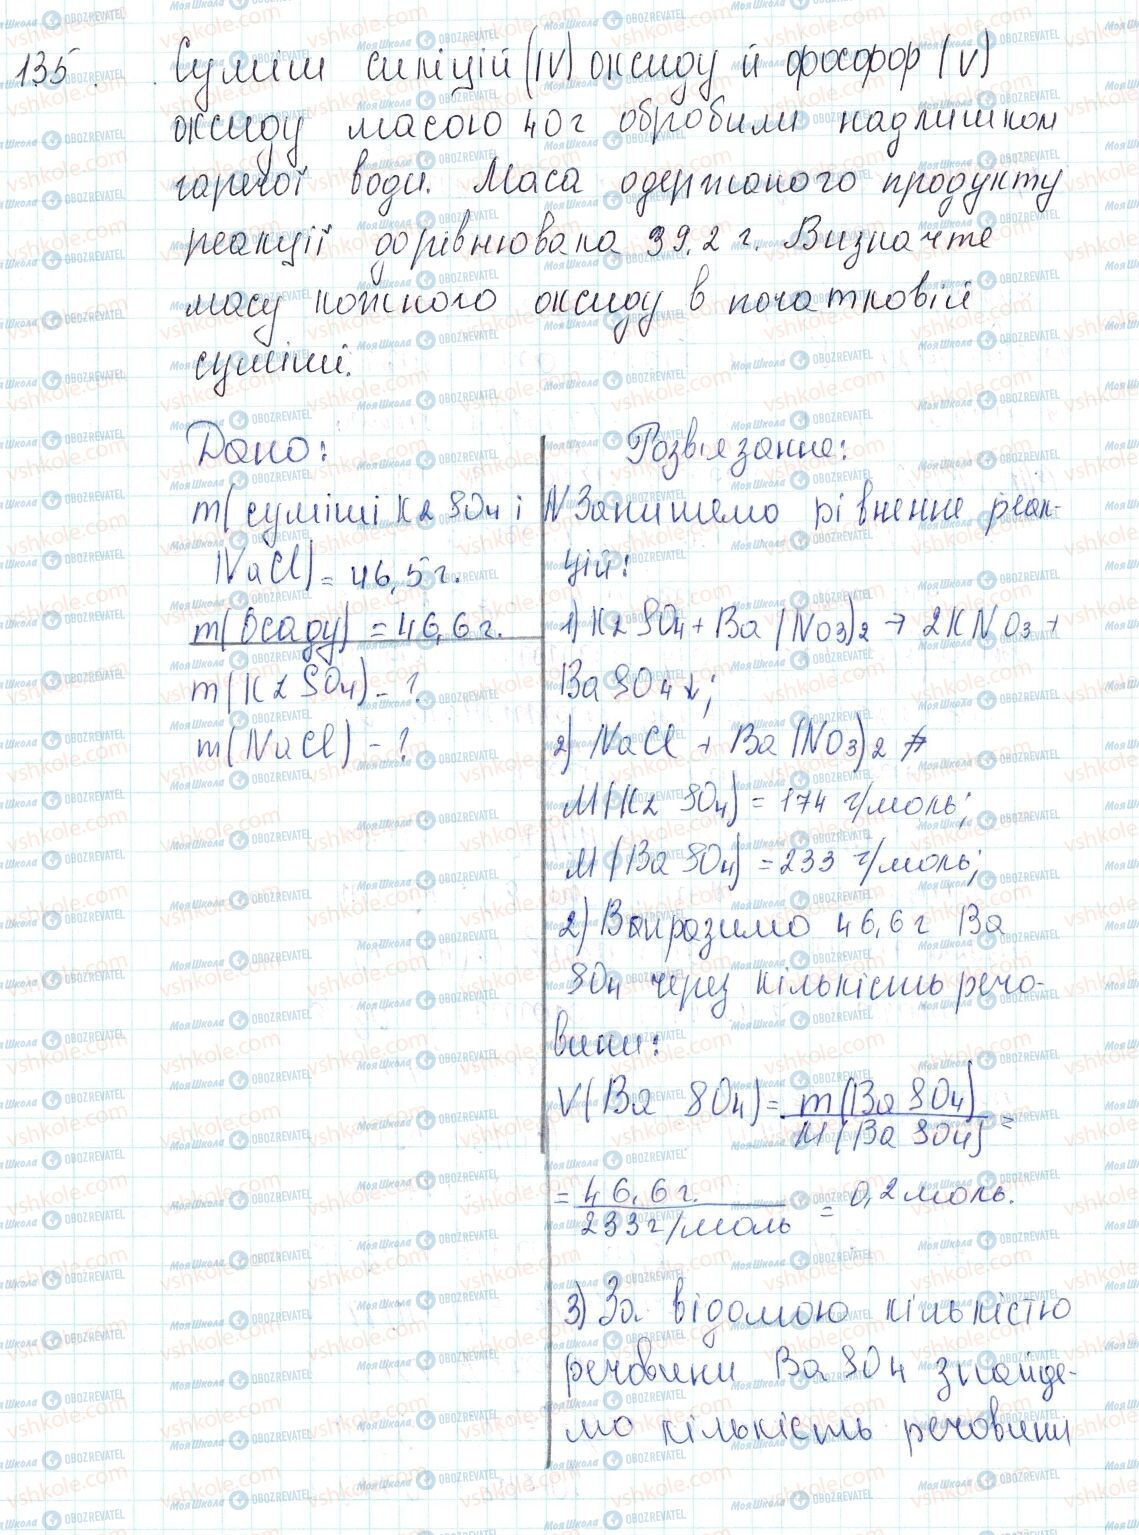 135. Суміш силіцій (IV) оксиду й фосфор (V)
оксиду масою 40 г обробили надлишком
гарячої води. Маса одержаного продукту
реакції дорівнювала 39.2 г. Визначте
масу кожного оксиду в початковій
суміші.
Дано:
m(суміші K2SO4 і
NaCl) = 46,5 г.
m(Осаду) = 46,6 г.
m(K2SO4) - ?
m(NaCl) - ?
Розв'язання:
Запишемо рівнення реак-
цій:
1) K2SO4 + Ba(NO3)2 → 2KNO3 +
BaSO4↓;
2) NaCl + Ba(NO3)2 ≠
M(K2SO4) = 174 г/моль;
M(BaSO4) = 233 г/моль;
2) Виразимо 46,6 г Ba
SO4 через кількість речо-
вини:
V(BaSO4) = m(BaSO4) =
M(BaSO4)
= 46,6 г. = 0,2 моль.
233 г/моль
3) За відомою кількістю
речовини BaSO4 знайде-
мо кількість речовини
МояШкола OBOZREVATEL
vshkole.com